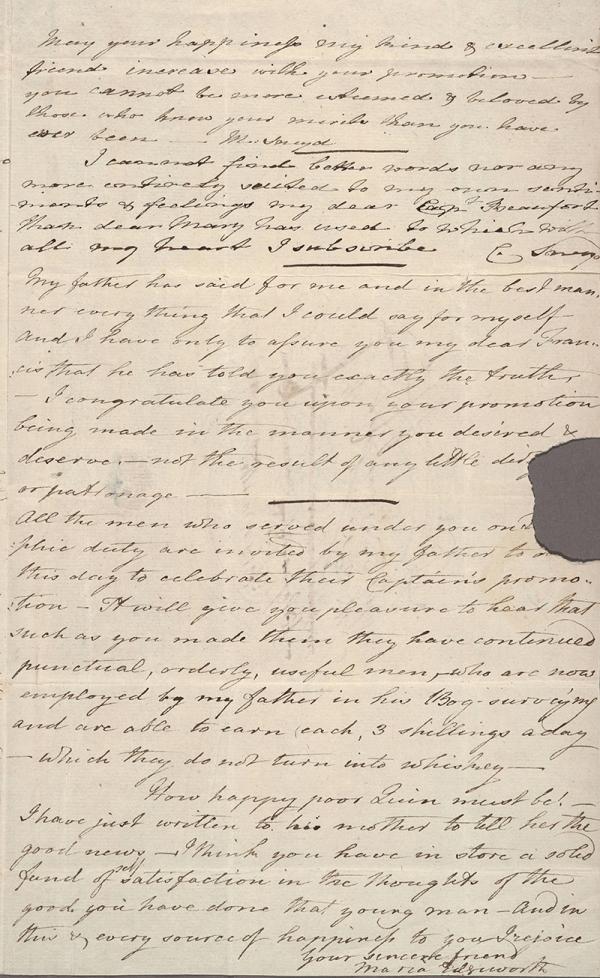 May your happiness my kind & excellent
friend increase with your promotion —
you cannot be more esteemed & beloved by
those who know your merits than you have
ever been — M. Sneyd
I cannot find better words nor any
more entirely suited to my own senti-
ments & feelings my dear Capt Beaufort
than dear Mary has used to which with
all my heart I subscribe C. Sneyd
My father has said for me and in the best man-
ner every thing that I could say for myself
and I have only to assure you my dear Fran-
cis that he has told you exactly the truth,
— I congratulate you upon your promotion
being made in the manner you desired &
deserve. — not the result of any little
or patronage —
All the men who served under you on
phic duty are invited by my father to
this day to celebrate their Captain's promo-
tion — It will give you pleasure to hear that
such as you made them they have continued
punctual, orderly, useful men, who are now
employed by my father in his Bog-surveying
and are able to earn each, 3 shillings a day
— which they do not turn into whiskey —
How happy poor Quin must be! —
I have just written to his mother to tell her the
good news — I think you have in store a solid
fund of self satisfaction in the thoughts of the
good you have done that young man — And in
this & every source of happiness to you I rejoice
Your sincere friend
Maria Edgeworth